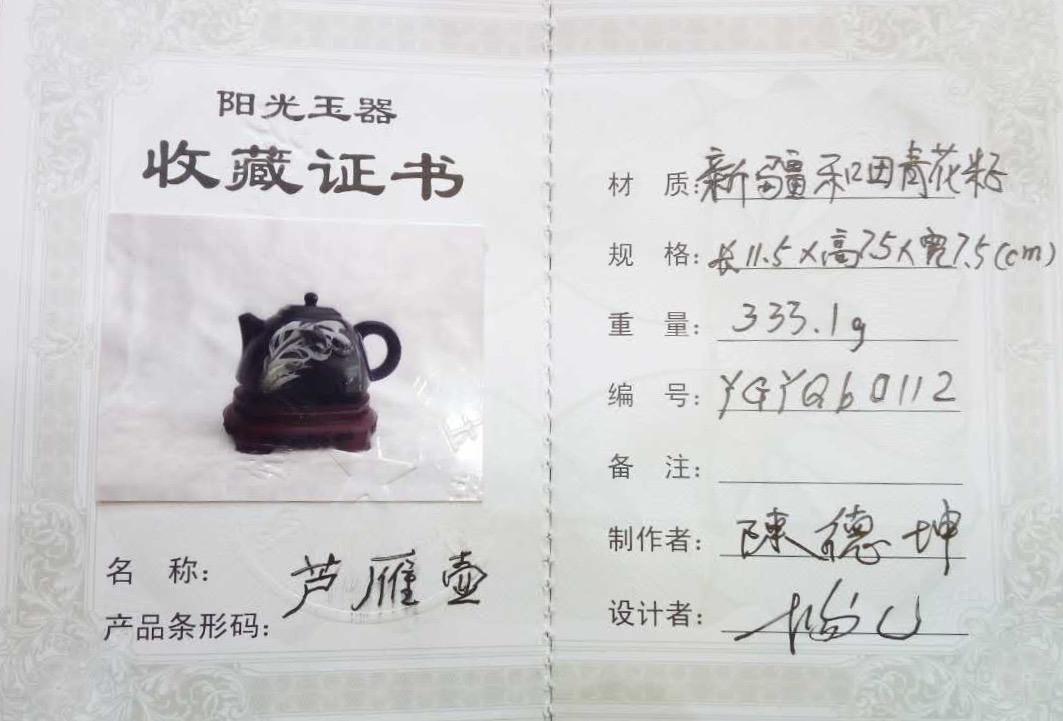 阳光玉器
收藏证书
名 称: 芦雁壶
产品条形码:
材 质: 新疆和田青花籽
规 格: 长11.5×高7.5×宽7.5(cm)
重 量: 333.1g
编 号: YGYQb0112
备 注:
制作者: 陳德坤
设计者: